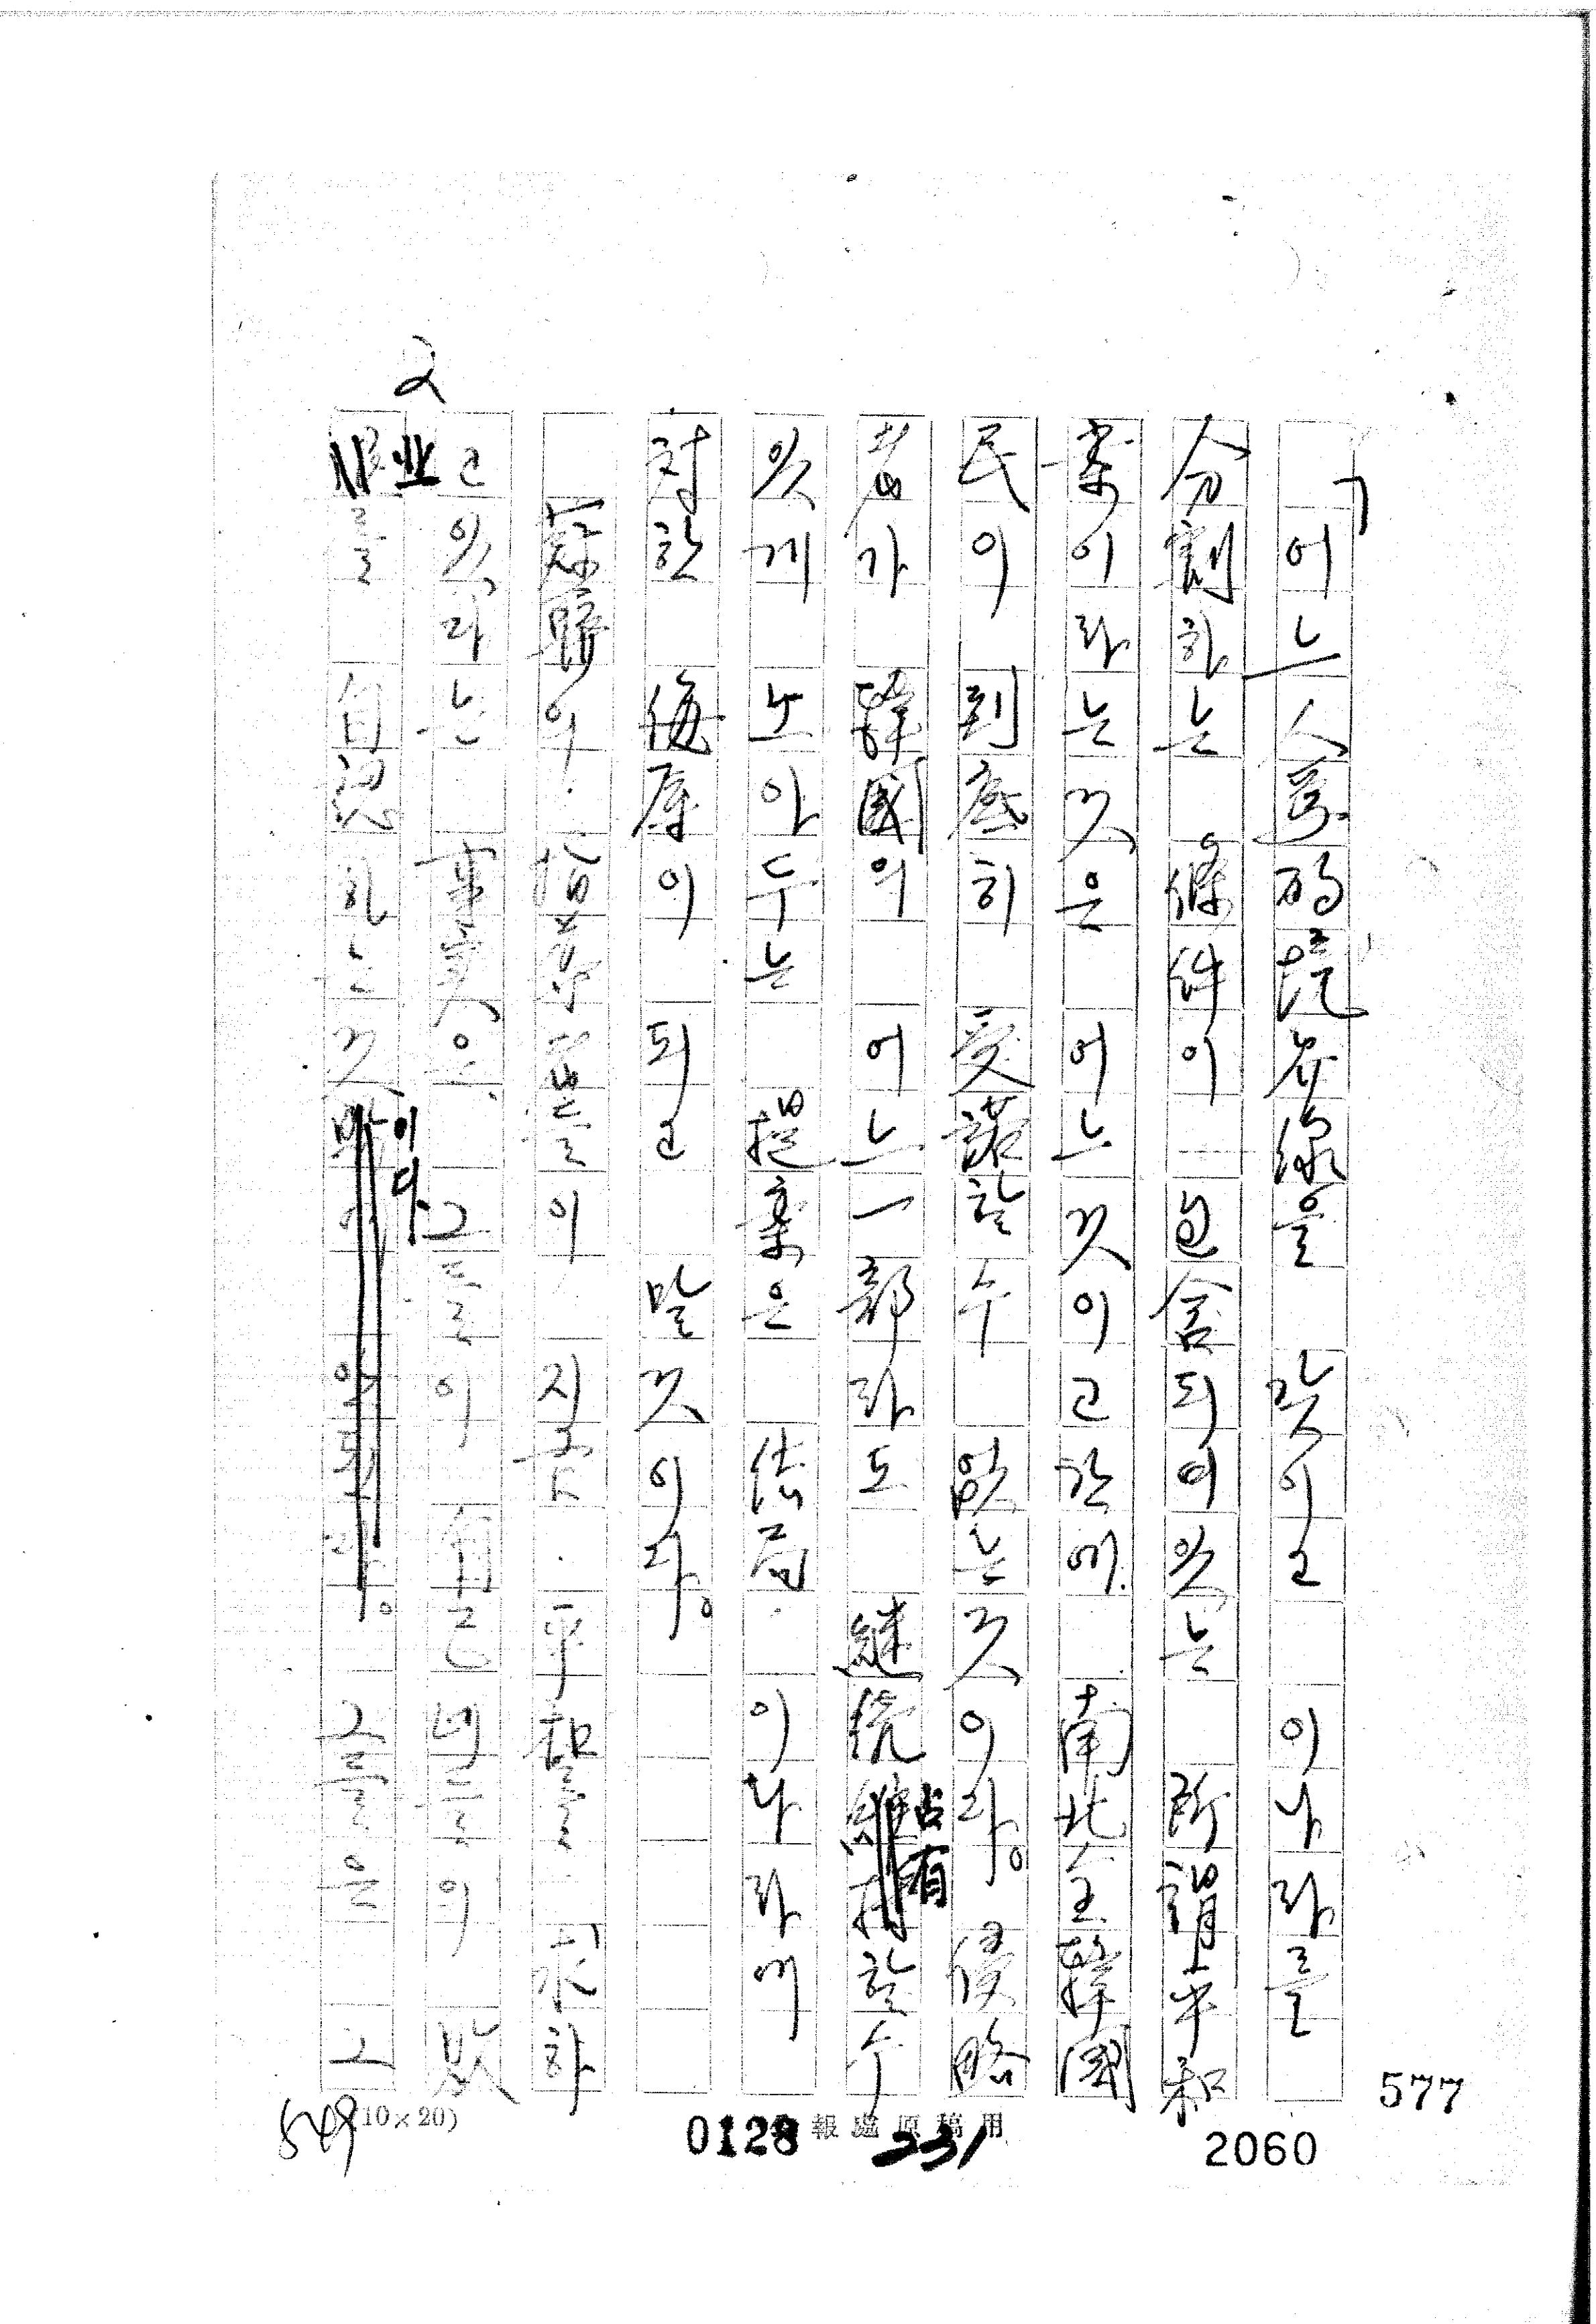 2
어느 人爲的境界線을 갖이고 이나라를
分割하는 條件이 包含되어있는 所謂平和
案이라는것은 어느것이고간에 南北全韓國
民이 到底히 受諾할수 없는것이다. 侵略
者가 韓國의 어느一部라도 繼續 占有할수
있게 노아두는 提案은 結局 이나라에
對한 侮辱이 되고 말것이다.
蘇聯의 指導者들이 지금 平和를 求하
고 있다는 事實은 그들이 自己네들의 敗
를 自認하는것이다 그들은 그
(10×20)
報處原稿用
0128
231
549
577
2060